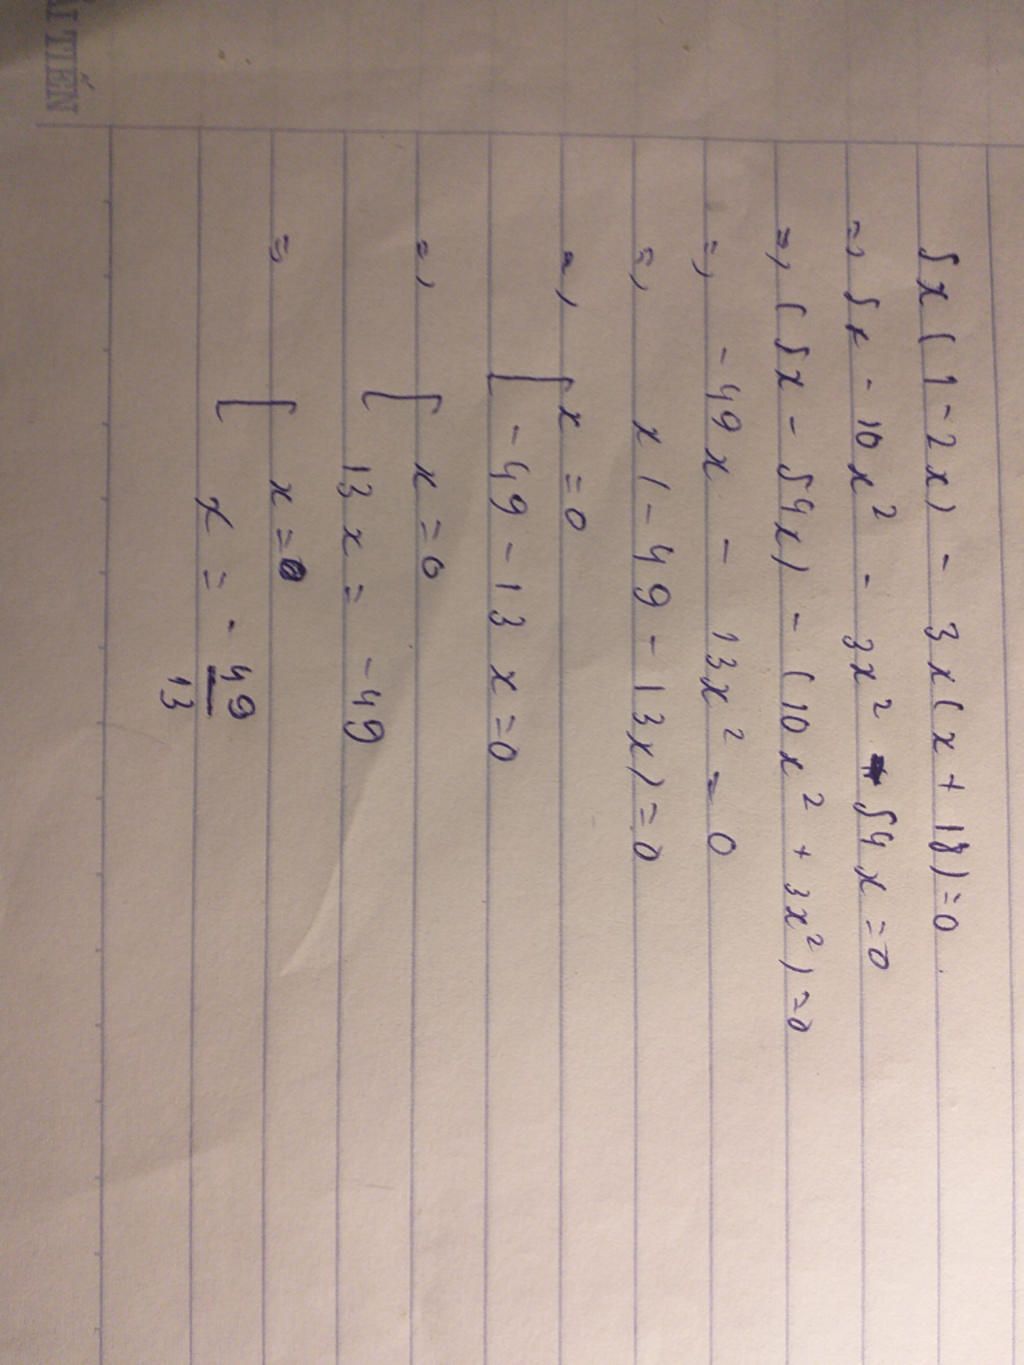 ẢI TIẾN
5x(1-2x) - 3x(x+18)=0.
=, 5x - 10x² - 3x² - 54x =0
=, (5x - 54x) - (10x² + 3x²)=0
=, -49x - 13x² = 0
=, x(-49-13x)=0
=, [ x=0
-49-13x=0
=, [ x=0
13x = -49
=, [ x=0
x = -49/13